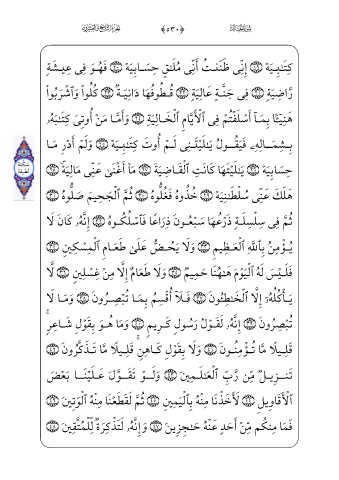 ﴿٥٣٠﴾
كِتَٰبِيَهْ ۝١٩ إِنِّى ظَنَنتُ أَنِّى مُلَٰقٍ حِسَابِيَهْ ۝٢٠ فَهُوَ فِى عِيشَةٍ
رَّاضِيَةٍ ۝٢١ فِى جَنَّةٍ عَالِيَةٍ ۝٢٢ قُطُوفُهَا دَانِيَةٌ ۝٢٣ كُلُوا۟ وَٱشْرَبُوا۟
هَنِيٓـًٔۢا بِمَآ أَسْلَفْتُمْ فِى ٱلْأَيَّامِ ٱلْخَالِيَةِ ۝٢٤ وَأَمَّا مَنْ أُوتِىَ كِتَٰبَهُۥ
بِشِمَالِهِۦ فَيَقُولُ يَٰلَيْتَنِى لَمْ أُوتَ كِتَٰبِيَهْ ۝٢٥ وَلَمْ أَدْرِ مَا
حِسَابِيَهْ ۝٢٦ يَٰلَيْتَهَا كَانَتِ ٱلْقَاضِيَةَ ۝٢٧ مَآ أَغْنَىٰ عَنِّى مَالِيَهْ ۝٢٨
هَلَكَ عَنِّى سُلْطَٰنِيَهْ ۝٢٩ خُذُوهُ فَغُلُّوهُ ۝٣٠ ثُمَّ ٱلْجَحِيمَ صَلُّوهُ ۝٣١
ثُمَّ فِى سِلْسِلَةٍ ذَرْعُهَا سَبْعُونَ ذِرَاعًا فَٱسْلُكُوهُ ۝٣٢ إِنَّهُۥ كَانَ لَا
يُؤْمِنُ بِٱللَّهِ ٱلْعَظِيمِ ۝٣٣ وَلَا يَحُضُّ عَلَىٰ طَعَامِ ٱلْمِسْكِينِ ۝٣٤
فَلَيْسَ لَهُ ٱلْيَوْمَ هَٰهُنَا حَمِيمٌ ۝٣٥ وَلَا طَعَامٌ إِلَّا مِنْ غِسْلِينٍ ۝٣٦ لَّا
يَأْكُلُهُۥٓ إِلَّا ٱلْخَٰطِـُٔونَ ۝٣٧ فَلَآ أُقْسِمُ بِمَا تُبْصِرُونَ ۝٣٨ وَمَا لَا
تُبْصِرُونَ ۝٣٩ إِنَّهُۥ لَقَوْلُ رَسُولٍ كَرِيمٍ ۝٤٠ وَمَا هُوَ بِقَوْلِ شَاعِرٍ ۚ
قَلِيلًا مَّا تُؤْمِنُونَ ۝٤١ وَلَا بِقَوْلِ كَاهِنٍ ۚ قَلِيلًا مَّا تَذَكَّرُونَ ۝٤٢
تَنزِيلٌ مِّن رَّبِّ ٱلْعَٰلَمِينَ ۝٤٣ وَلَوْ تَقَوَّلَ عَلَيْنَا بَعْضَ
ٱلْأَقَاوِيلِ ۝٤٤ لَأَخَذْنَا مِنْهُ بِٱلْيَمِينِ ۝٤٥ ثُمَّ لَقَطَعْنَا مِنْهُ ٱلْوَتِينَ ۝٤٦
فَمَا مِنكُم مِّنْ أَحَدٍ عَنْهُ حَٰجِزِينَ ۝٤٧ وَإِنَّهُۥ لَتَذْكِرَةٌ لِّلْمُتَّقِينَ ۝٤٨